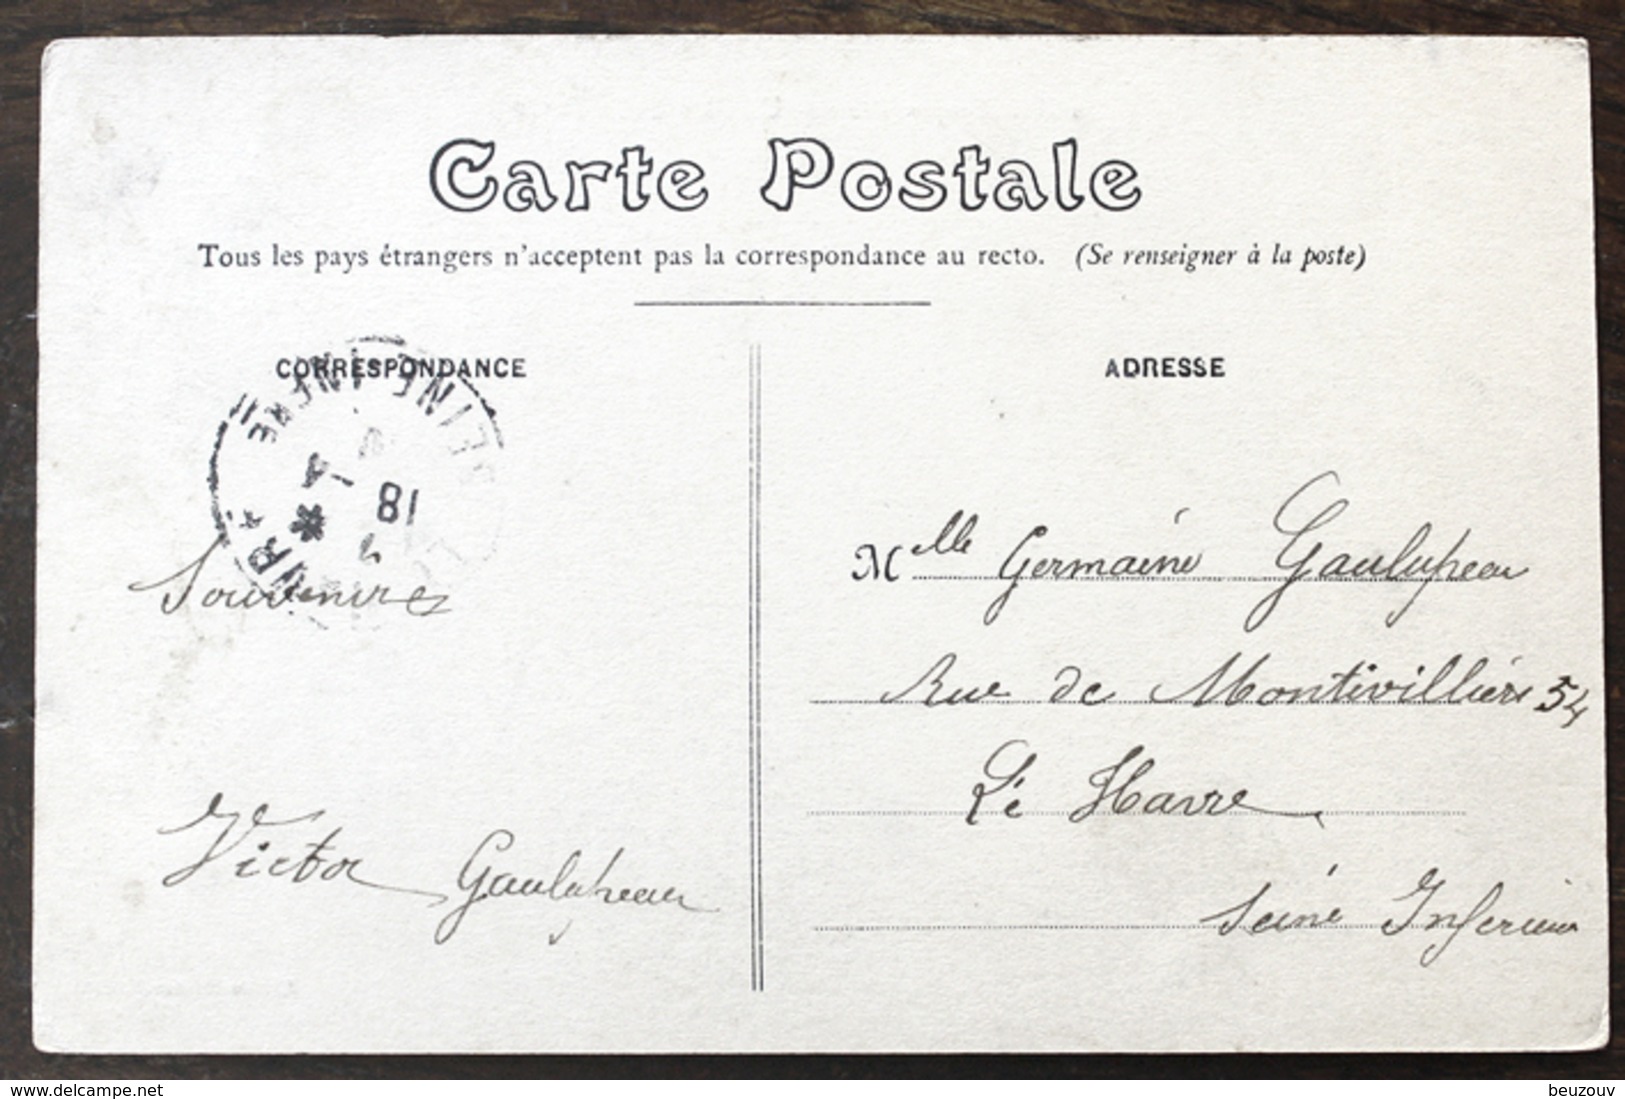 Carte Postale
Tous les pays étrangers n'acceptent pas la correspondance au recto. (Se renseigner à la poste)
CORRESPONDANCE
ADRESSE
18
Souvenirs
Victor Gaulupeau
Mlle Germaine Gaulupeau
Rue de Montivilliers 54
Le Havre
Seine Inferieur
www.delcampe.net
beuzouv